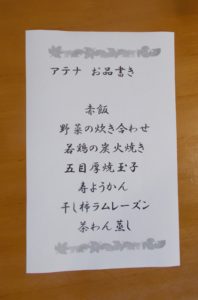 アテナ お品書き
赤飯
野菜の炊き合わせ
若鶏の炭火焼き
五目厚焼玉子
寿ようかん
干し柿ラムレーズン
茶わん蒸し